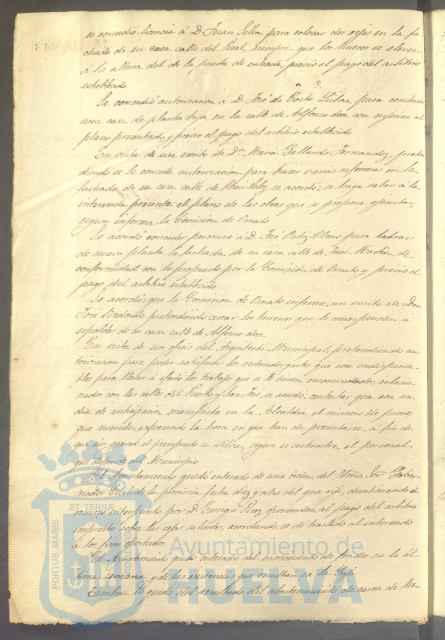 se concedió licencia á D. Juan
para colocar dos rejas en la fa-
chada de su casa calle del
siempre que los huecos se eleven
á la altura del de la puerta de entrada, previo el pago del arbitrio
establecido
Se concedió autorización á D. José de
para construir
una casa de planta baja en la calle de Alfonso doce con sujeción al
plano presentado y previo el pago del arbitrio establecido
En vista de un escrito de Dª. María Gallardo Fernandez, preten-
diendo se le conceda autorización para hacer varias reformas en la
fachada de su casa calle de
se acordó se haga saber á la
interesada presente el plano de las obras que se propone ejecutar,
segun informa la Comisión de Ornato
Se acordó conceder permiso á D. José
para labrar
de nueva planta la fachada de su casa calle de
de
conformidad con lo propuesto por la Comisión de Ornato y previo el
pago del arbitrio establecido
Se acordó que la Comisión de Ornato informe un escrito de Don
José Redondo pretendiendo cercar los terrenos que le corresponden á
espaldas de su casa calle de Alfonso doce
En vista de un oficio del Arquitecto Municipal, pretendiendo au-
torización para poder satisfacer los
gastos que son indispensa-
bles para llevar á efecto los trabajos que se le tienen encomendados, relacio-
nados con las calles del Puerto y San José, se acordó, contestar que con un
dia de anticipación manifieste en la Alcaldia el número de peones
que necesite, expresando la hora en que han de presentarse, á fin de
que sin gravar el presupuesto se utilice, segun es costumbre, el personal
que depende del Municipio
El Ayuntamiento quedó enterado de una órden del Señor Gober-
nador Civil de la provincia, fecha diez y ocho del que rige, desestimando el
recurso interpuesto por D. Enrique
oponiendose al pago del arbitrio
impuesto sobre las rejas salientes, acordandose se dé traslado al interesado
á los fines oportunos
El Ayuntamiento quedó enterado del movimiento de fondos en la úl-
tima semana y de las existencias que resultan en la Caja
Tambien lo quedó del resultado del abastecimiento de carne de
PORTUS MARIS
ET TERRAE
Ayuntamiento de
HUELVA